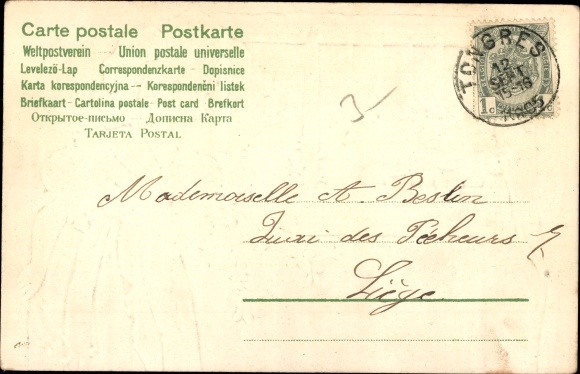 Carte postale Postkarte
Weltpostverein — Union postale universelle
Levelező-Lap Correspondenzkarte - Dopisnice
Karta korespondencyjna — Korespondenčni listek
Briefkaart - Cartolina postale - Post card - Brefkort
Открытое-письмо - Дописна Карта
TARJETA POSTAL
TONGRES
12
SEPT
15-16
1905
1c
Mademoiselle A. Beslin
Quai des Pêcheurs
Liège